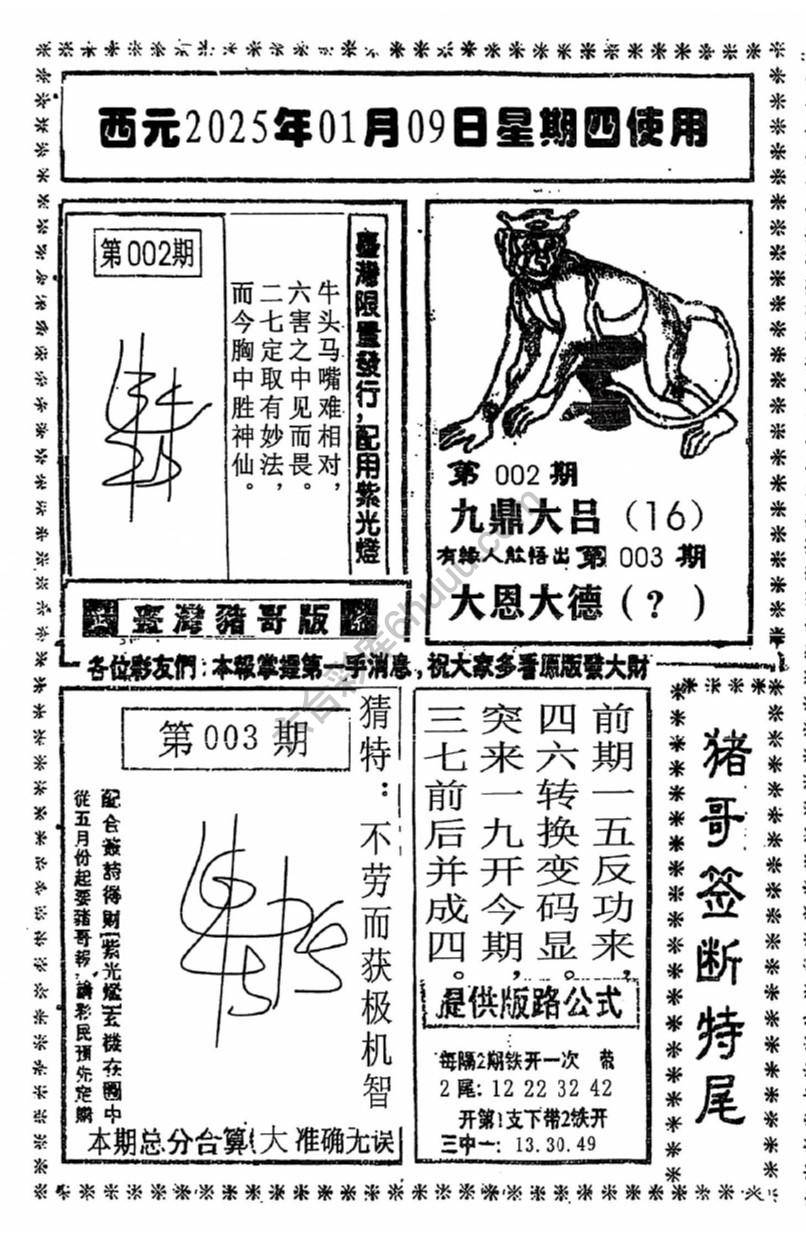 西元2025年01月09日星期四使用
第002期
牛头马嘴难相对，
六害之中见而畏。
二七定取有妙法，
而今胸中胜神仙。
臺灣限量發行，配用紫光燈
第 002 期
九鼎大吕（16）
有緣人能悟出 第 003 期
大恩大德（？）
臺灣豬哥版
各位彩友們：本報掌握第一手消息，祝大家多看原版發大財
第 003 期
猜特：不劳而获极机智
配合簽詩得財(紫光燈)玄機在圖中
從五月份起要豬哥報，請彩民預先定購
本期总分合算(大 准确无误
前期一五反功来，
四六转换变码显。
突来一九开今期，
三七前后并成四。
提供版路公式
每隔2期铁开一次 带
2尾：12 22 32 42
开第1支下带2铁开
三中一：13.30.49
猪哥签断特尾
六合彩库6huuu.com